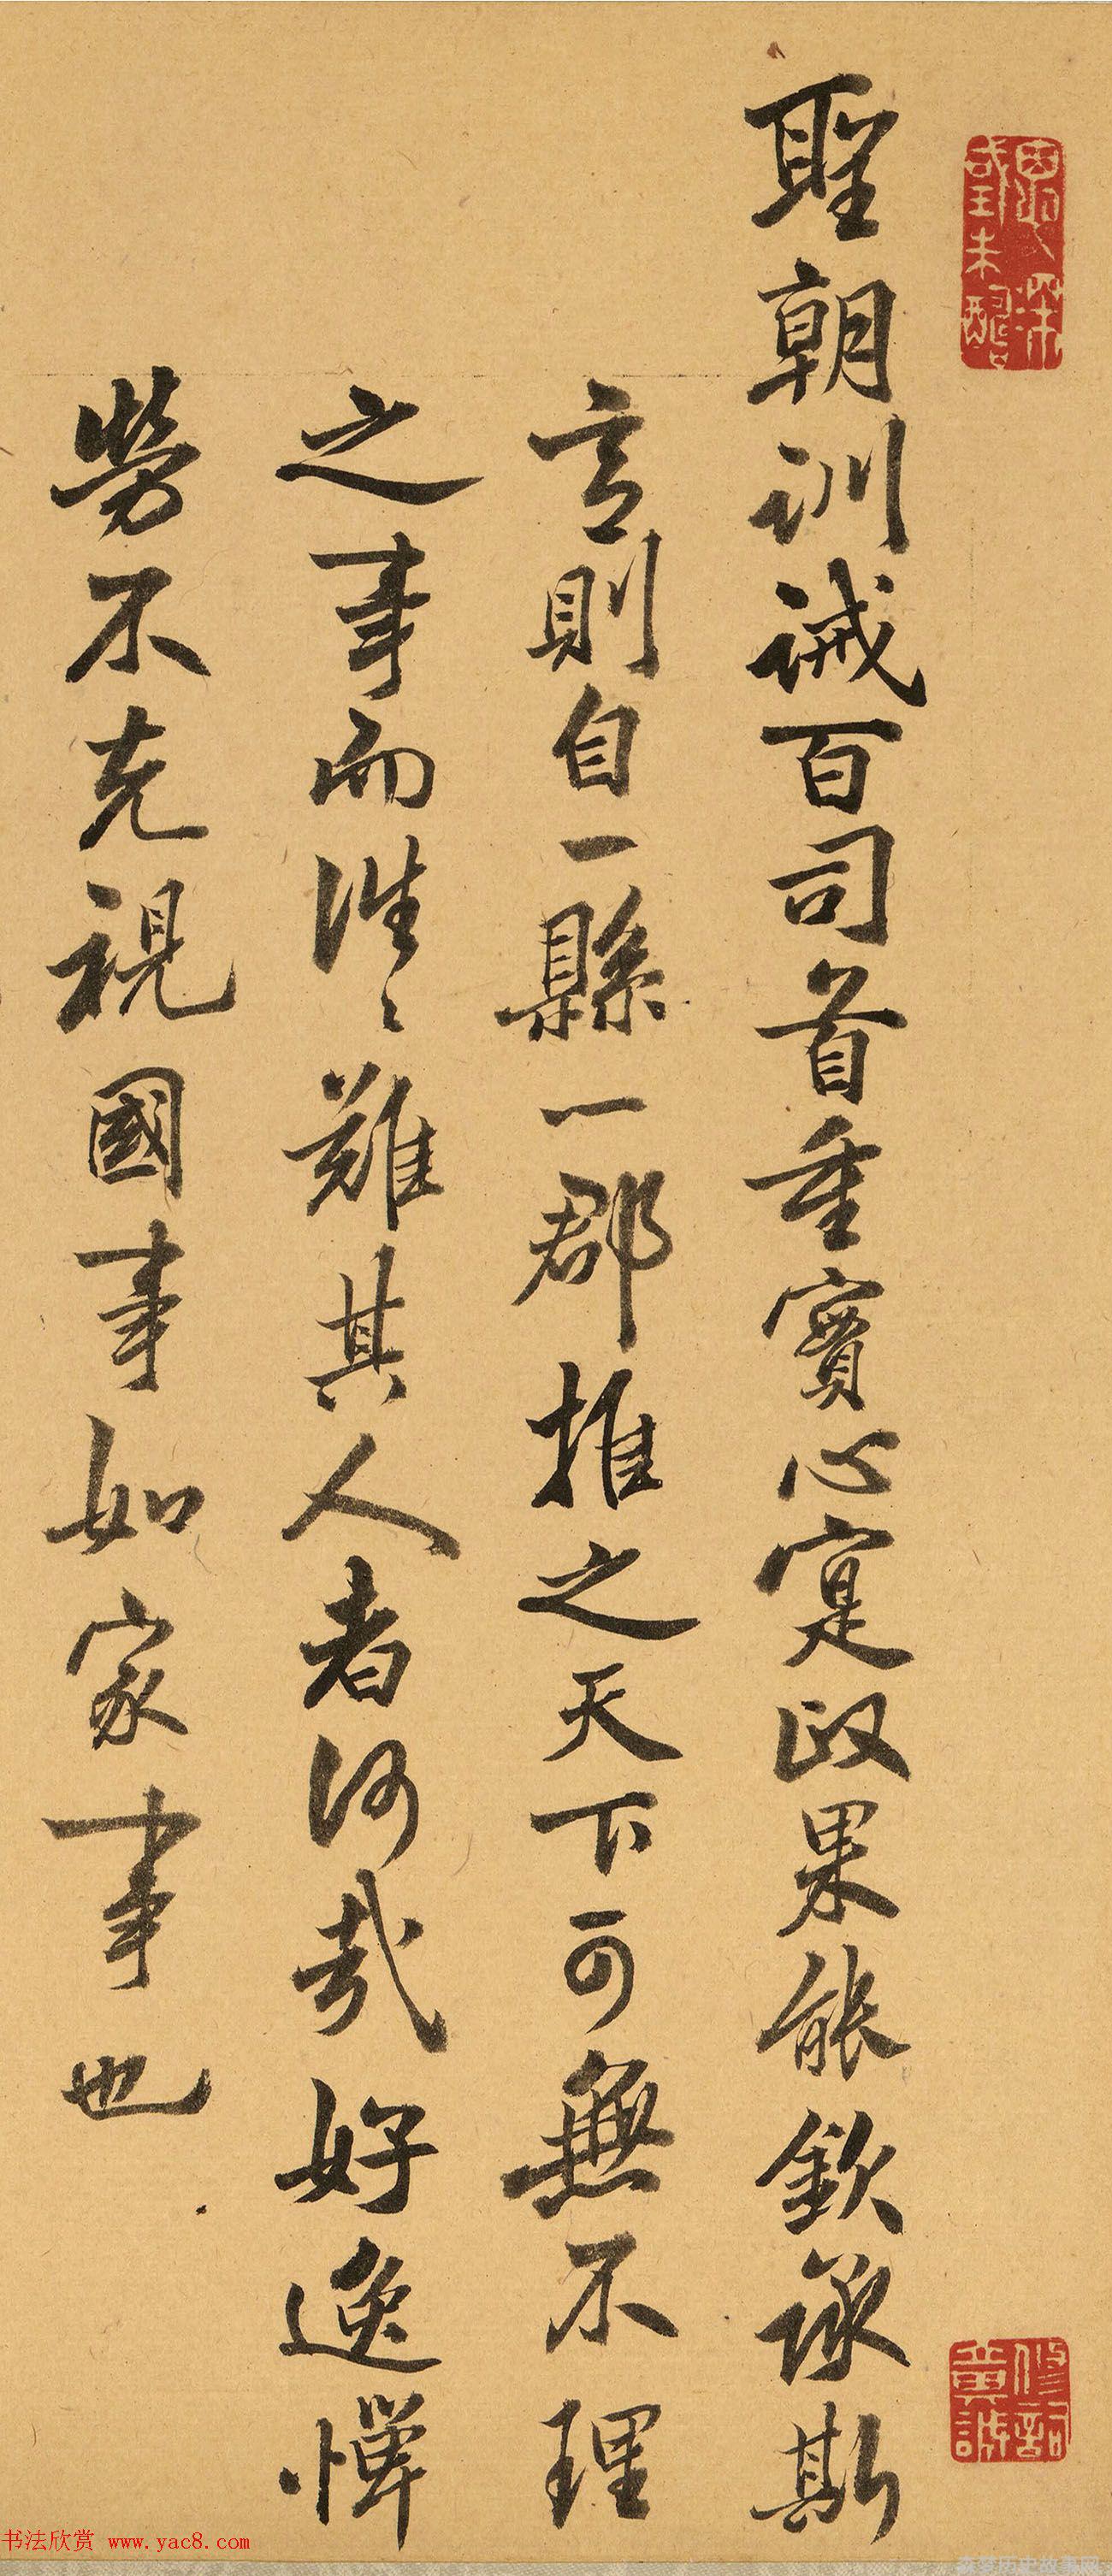 聖朝訓誡百司首重實心寔政果能欽承斯
言則自一縣一郡推之天下可無不理
之事而往〻難其人者何哉好逸憚
勞不克視國事如家事也
修詞
黃誠
书法欣赏 www.yac8.com